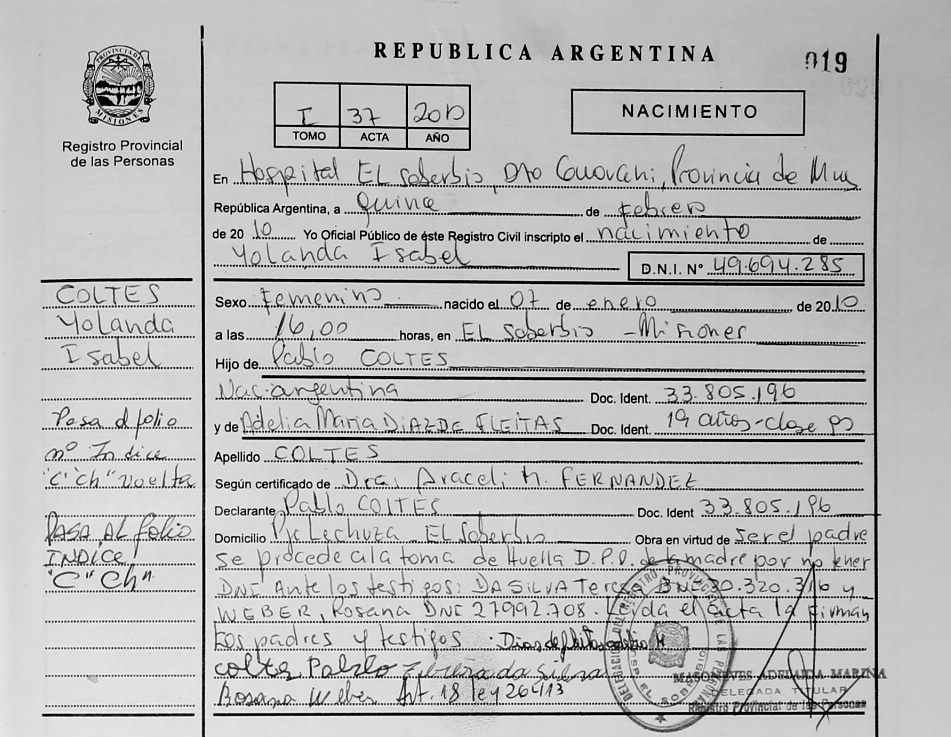 REPUBLICA ARGENTINA
019
PROVINCIA DE MISIONES
Registro Provincial
de las Personas
I 37 2010
TOMO ACTA AÑO
NACIMIENTO
En Hospital EL Soberbio, Dto Guarani, Provincia de Mnes
República Argentina, a quince de Febrero
de 2010 Yo Oficial Público de éste Registro Civil inscripto el nacimiento de
Yolanda Isabel D.N.I. Nº 49.694.285
COLTES
Yolanda
Isabel
Pasa al folio
nº Indice
"C" Ch" Vuelta
PASA AL folio
INDICE
"C" Ch"
Sexo Femenino nacido el 07 de enero de 2010
a las 16,00 horas, en EL Soberbio - Misiones
Hijo de Pablo COLTES
Nac. argentina Doc. Ident. 33.805.196
y de Adelia Maria DIAZ DE FLEITAS Doc. Ident. 19 años - clase 90
Apellido COLTES
Según certificado de Dra. Araceli N. FERNANDEZ
Declarante Pablo COLTES Doc. Ident 33.805.196
Domicilio Pje Lechuza EL Soberbio Obra en virtud de Ser el padre
Se procede a la toma de Huella D.P.D. de la madre por no tener
DNI Ante los testigos: DA SILVA Teresa DNI 30.320.316 y
WEBER, Rosana DNI 27992.708. Leida el acta la firman
Los padres y testigos
Colte Pablo da Silva
Rosana Weber Art. 18 ley 26413
MASONEVES ADELAIDA MARINA
DELEGADA TITULAR
Registro Provincial de las Personas